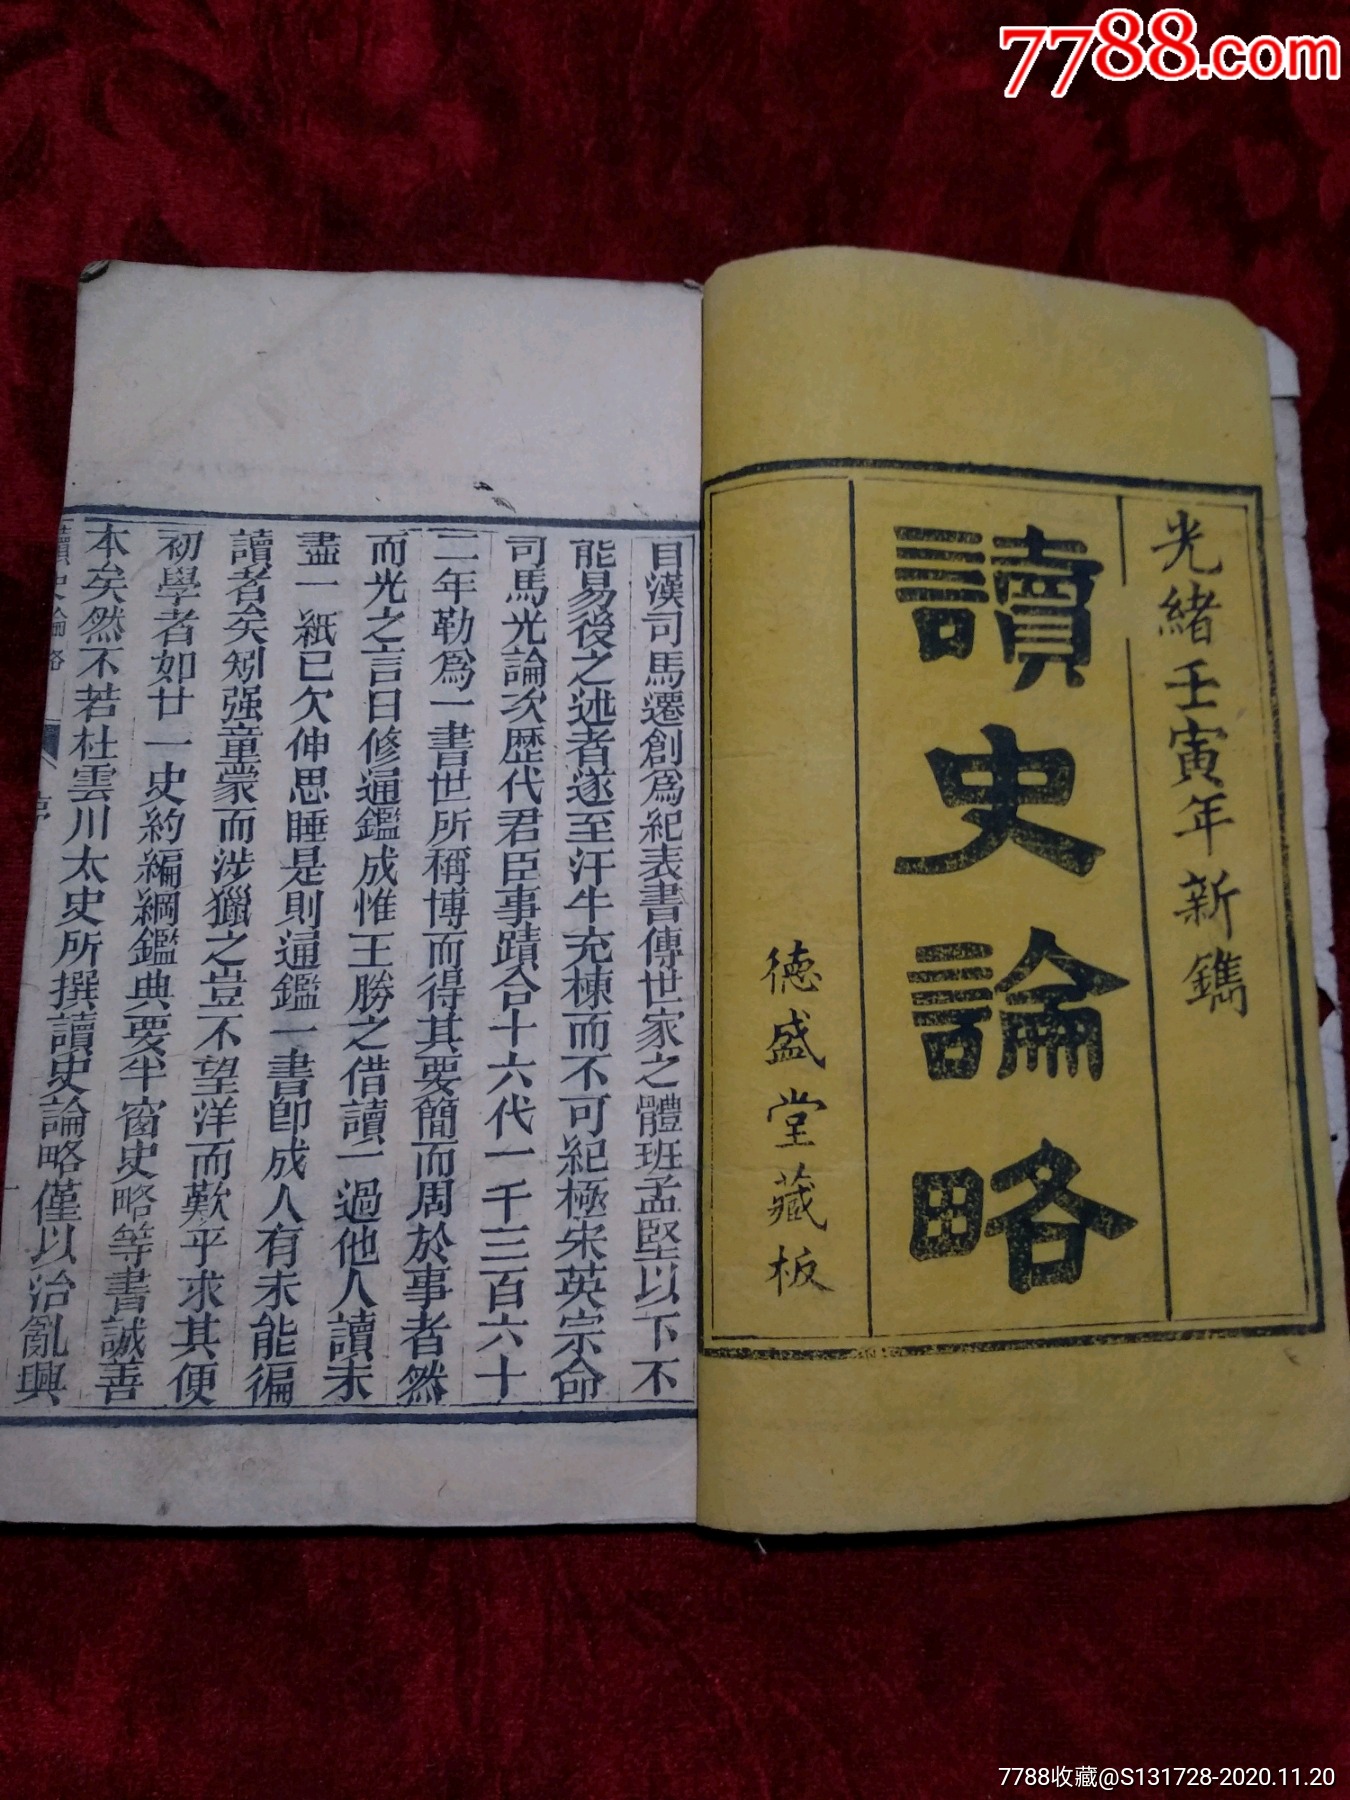 7788.com
光緒壬寅年新鐫
讀史論略
德盛堂藏板
自漢司馬遷創爲紀表書傳世家之體班孟堅以下不
能易後之述者遂至汗牛充棟而不可紀極宋英宗命
司馬光論次歴代君臣事蹟合十六代一千三百六十
二年勒爲一書世所稱博而得其要簡而周於事者然
而光之言曰修通鑑成惟王勝之借讀一過他人讀未
盡一紙已欠伸思睡是則通鑑一書卽成人有未能徧
讀者矣矧强童蒙而涉獵之豈不望洋而歎乎求其便
初學者如廿一史約編綱鑑典要半窗史略等書誠善
本矣然不若杜雲川太史所撰讀史論略僅以治亂興
讀史論略
序
一
7788收藏@S131728-2020.11.20